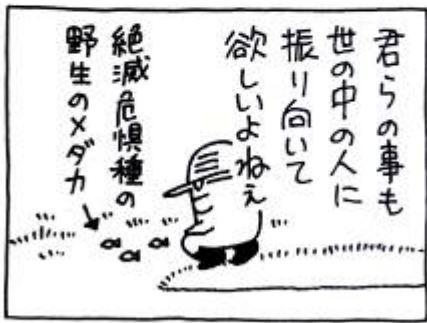 君らの事も
世の中の人に
振り向いて
欲しいよねぇ
絶滅危惧種の
野生のメダカ